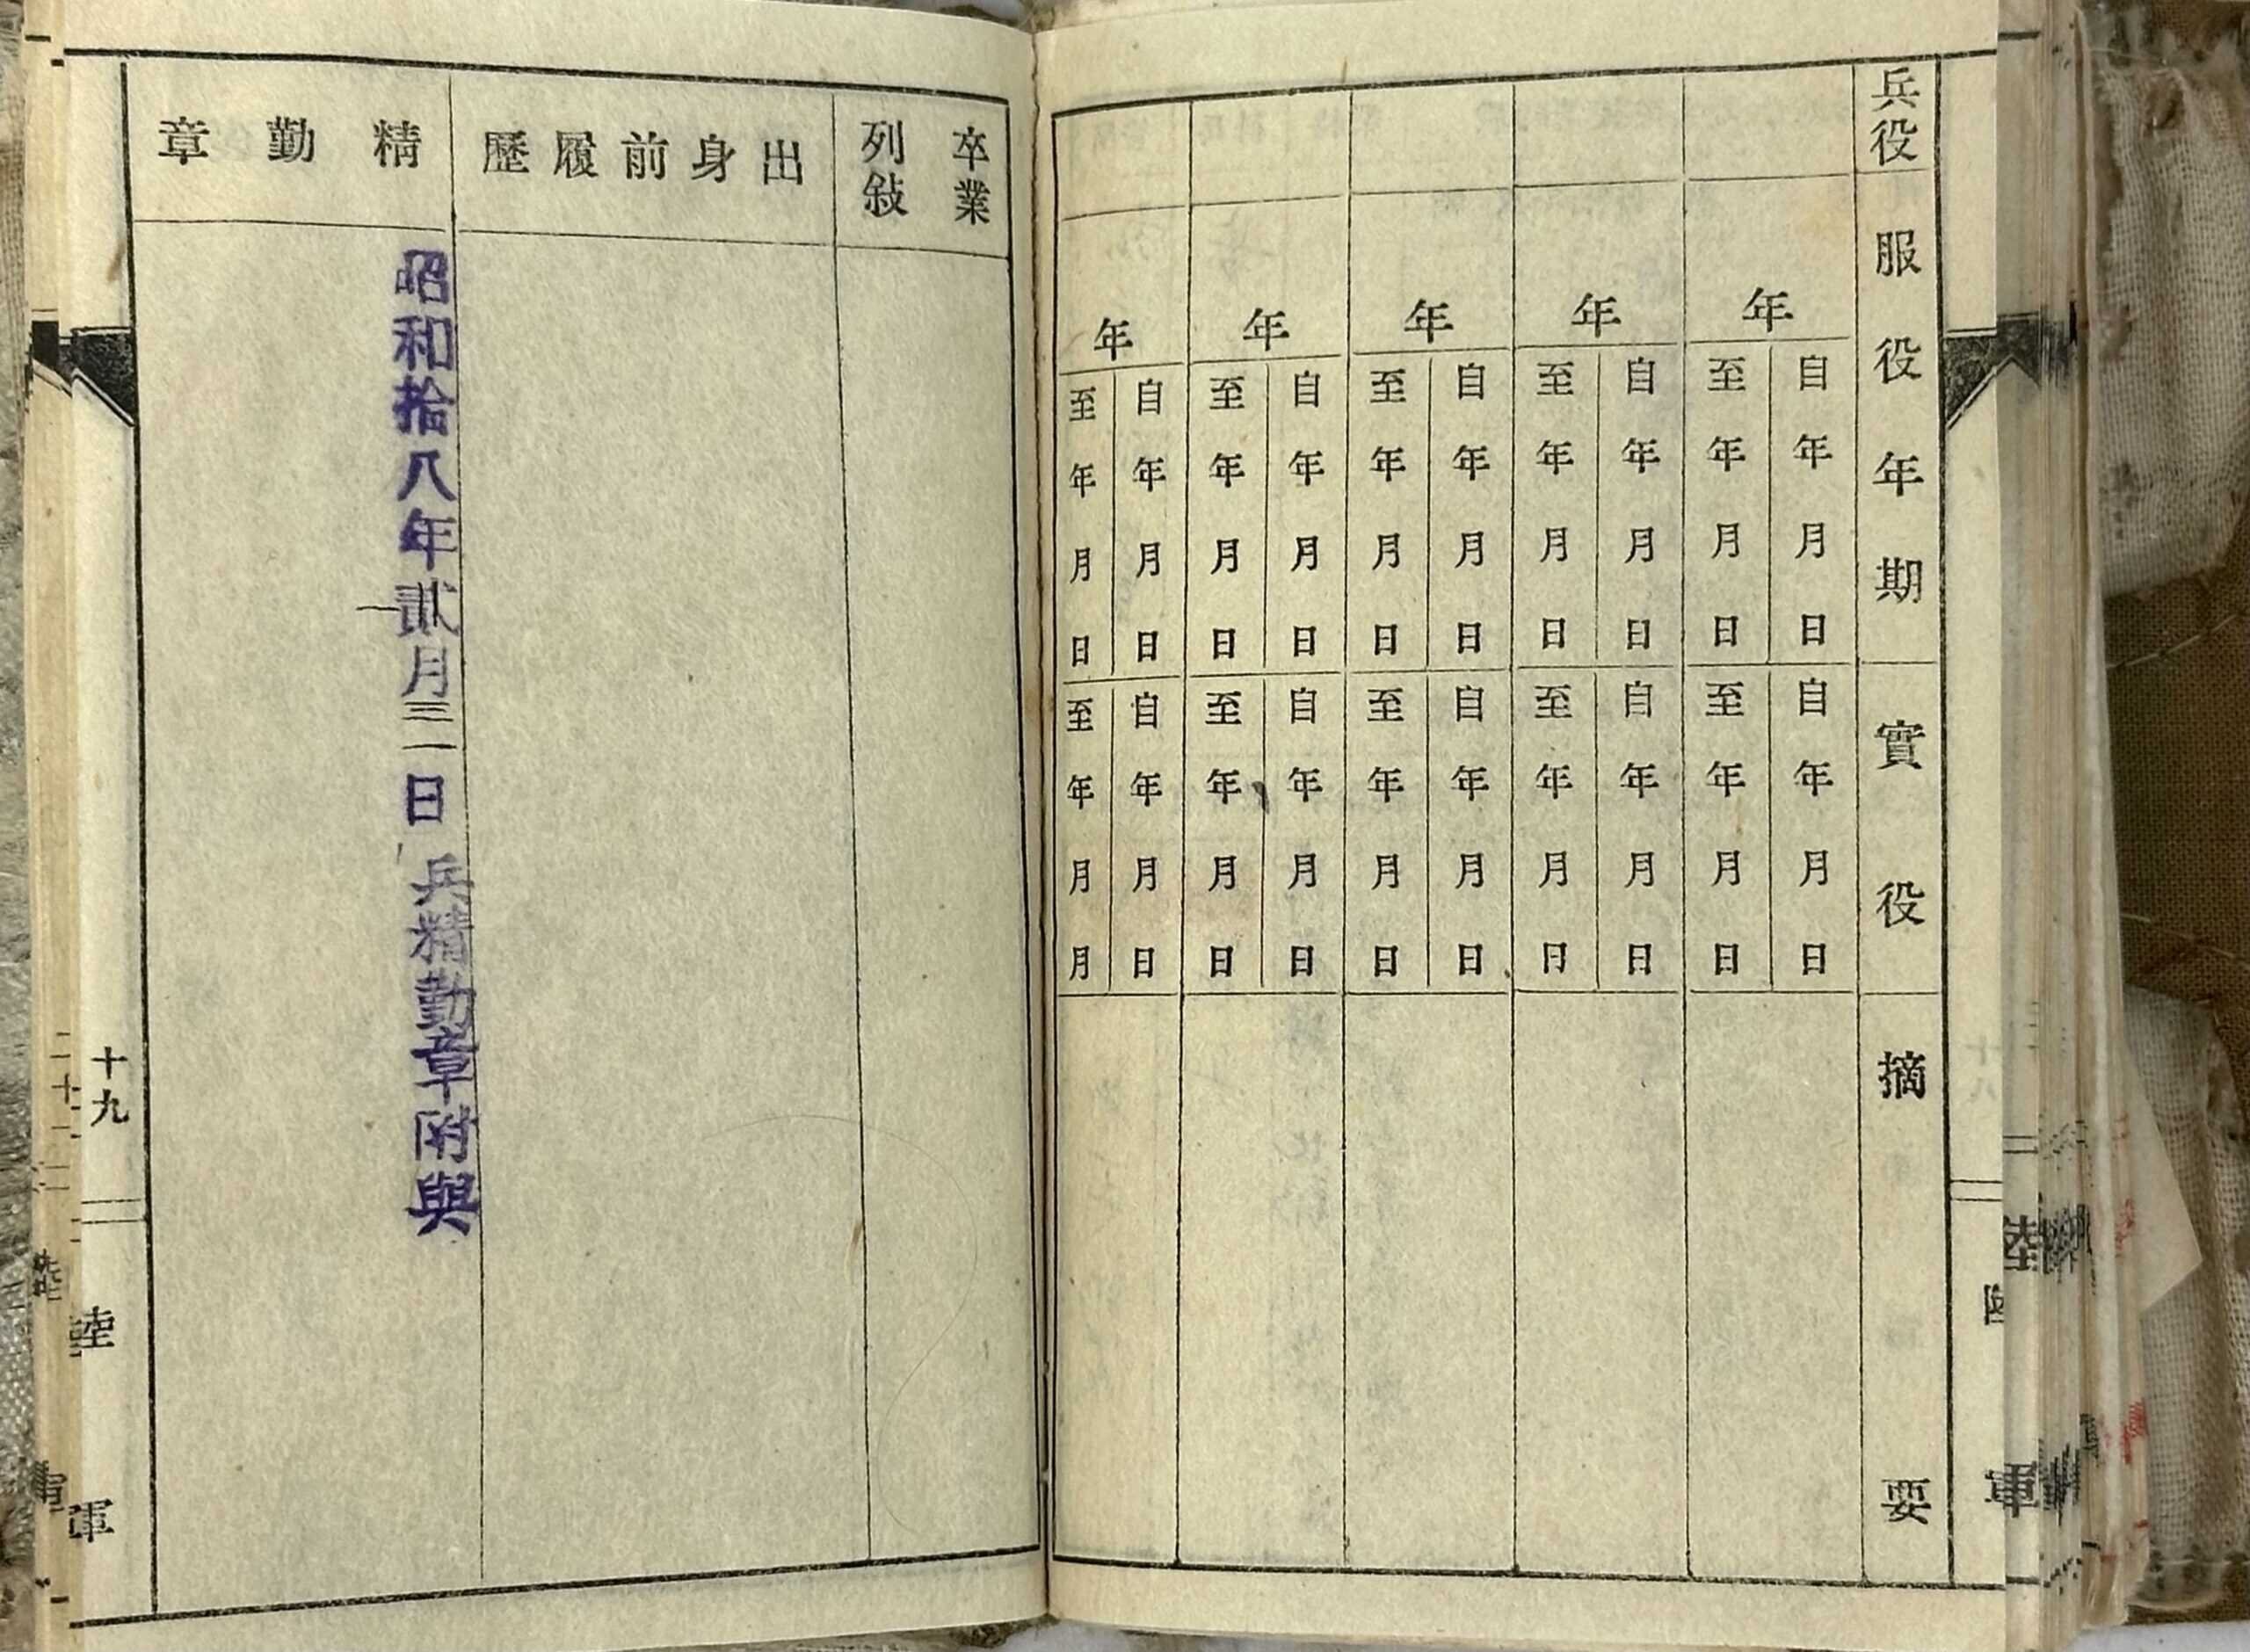 兵役
服役年期
實役
摘要
年
自年月日
至年月日
自年月日
至年月日
年
自年月日
至年月日
自年月日
至年月日
年
自年月日
至年月日
自年月日
至年月日
年
自年月日
至年月日
自年月日
至年月日
年
自年月日
至年月日
自年月日
至年月月
卒業
列敍
出身前履歷
精勤章
昭和拾八年貳月三一日 兵精勤章附與
十九
陸軍